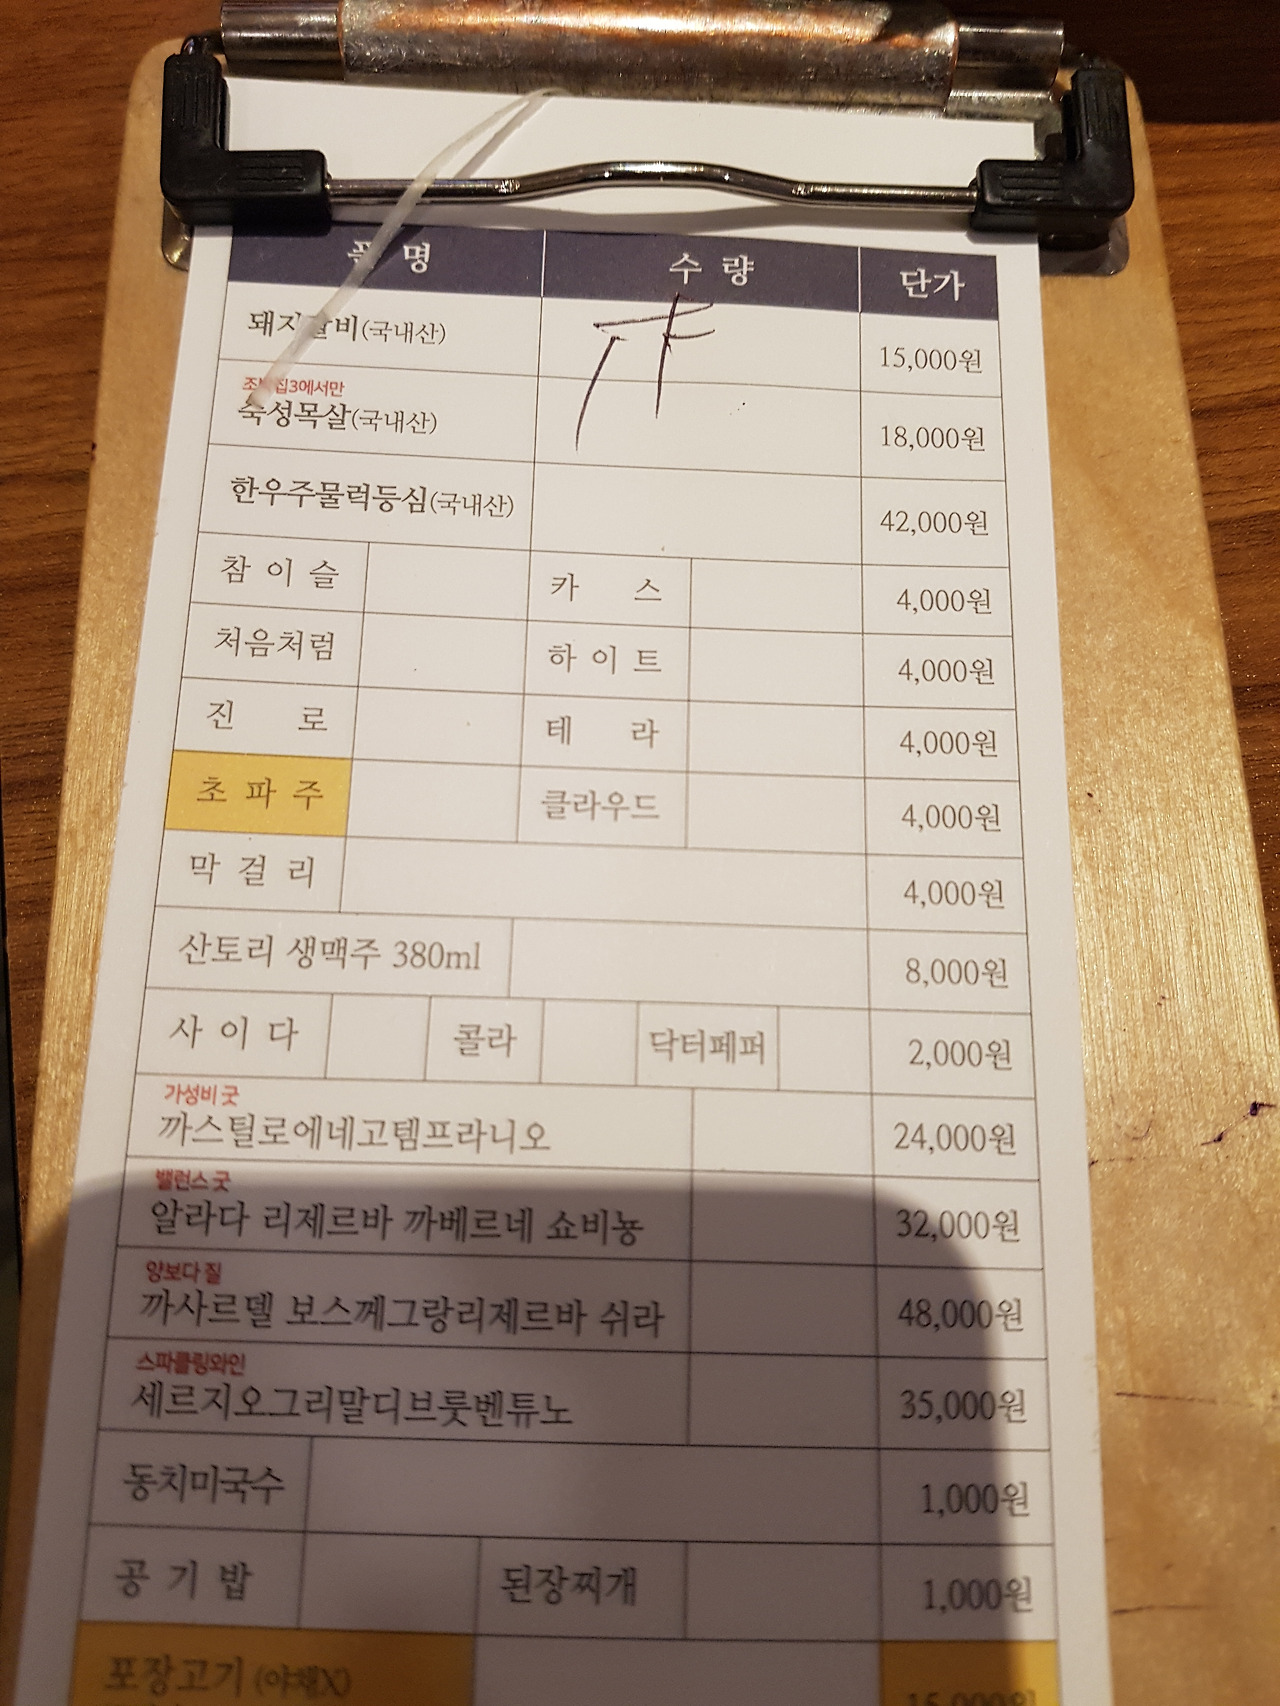 명 수 량 단가
돼지갈비(국내산) 15,000원
조박집3에서만
숙성목살(국내산) 18,000원
한우주물럭등심(국내산) 42,000원
참 이 슬 카 스 4,000원
처음처럼 하 이 트 4,000원
진 로 테 라 4,000원
초 파 주 클라우드 4,000원
막 걸 리 4,000원
산토리 생맥주 380ml 8,000원
사 이 다 콜라 닥터페퍼 2,000원
가성비 굿
까스틸로에네고템프라니오 24,000원
밸런스 굿
알라다 리제르바 까베르네 쇼비뇽 32,000원
양보다 질
까사르델 보스께그랑리제르바 쉬라 48,000원
스파클링와인
세르지오그리말디브룻벤튜노 35,000원
동치미국수 1,000원
공 기 밥 된장찌개 1,000원
포장고기 (야채X)